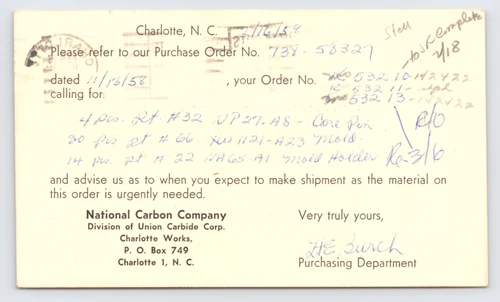 Charlotte, N. C. 2/16/59
Please refer to our Purchase Order No. 738-58327
dated 11/13/58, your Order No. 532 10-142422
calling for. 532 11-
532 13-142422
Still
to SK Complete
2/18
4 pcs. Pt. #32 NP27-A8 - Core Pin
30 pcs Pt #66 1121-A23 Mold
14 pcs. Pt # 22 NA65-A1 Mold Holder
R10
Re-3/6
and advise us as to when you expect to make shipment as the material on
this order is urgently needed.
National Carbon Company
Division of Union Carbide Corp.
Charlotte Works,
P. O. Box 749
Charlotte 1, N. C.
Very truly yours,
H.E. Burch
Purchasing Department